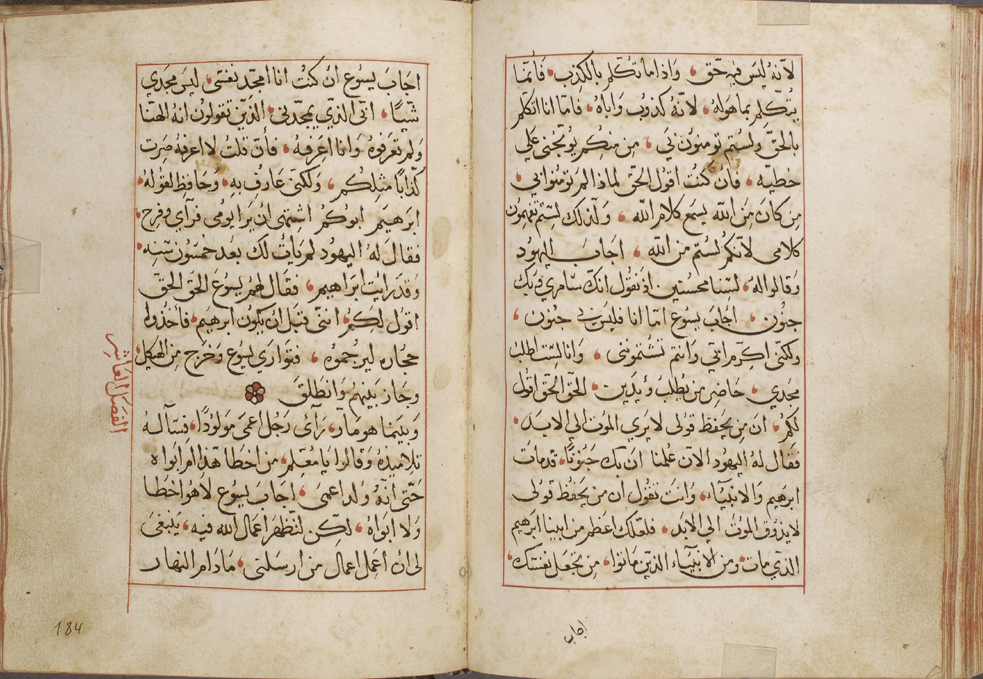 لانه ليس فيه حق واذا ما تكلم بالكذب فانما
يتكلم بما هو له لانه كذوب واباه فاما انا اتكلم
بالحق ولستم تومنون بي من منكم يوبخني علي
خطيه فان كنت اقول الحق لماذا لم تومنوا بي
من كان من الله يسمع كلام الله ولذلك لستم تسمعون
كلامي لانكم لستم من الله اجاب اليهود
وقالوا له لسنا محسنين اذ نقول انك سامري وبك
جنون اجاب يسوع اما انا فليس بي جنون
ولكني اكرم ابي وانتم تشتموني وانا لست اطلب
مجدي حاضر من يطلب ويدين الحق الحق اقول
لكم ان من يحفظ قولي لا يري الموت الي الابد
فقال له اليهود الان علمنا ان بك جنونا قد مات
ابرهيم والانبيآء وانت تقول ان من يحفظ قولي
لا يذوق الموت الي الابد فلعلك اعظم من ابينا ابرهيم
الذي مات ومن الانبيآء الذين ماتوا من تجعل نفسك
اجاب
اجاب يسوع ان كنت انا امجد نفسي ليس مجدي
شيا ابي الذي يمجدني الذي تقولون انه الهنا
ولم تعرفوه وانا اعرفه فان قلت لا اعرفه صرت
كذابا مثلكم ولكني عارف به وحافظ لقوله
ابرهيم ابوكم اشتهي ان يرا يومي فرآي وفرح
فقال له اليهود لم يات لك بعد خمسون سنه
وقد رايت ابراهيم فقال لهم يسوع الحق الحق
اقول لكم انني قبل ان يكون ابرهيم فاخذوا
حجاره ليرجموه فتواري يسوع وخرج من الهيكل
وجاز بينهم وانطلق
وبينما هو مار رآي رجل اعمي مولودا فسآله
تلاميذه وقالوا يا معلم من اخطا هذا ام ابواه
حتي انه ولد اعمي اجاب يسوع لا هو اخطا
ولا ابواه لكن لتظهر اعمال الله فيه ينبغي
لي ان اعمل اعمال من ارسلني ما دام النهار
الفصل العاشر
184